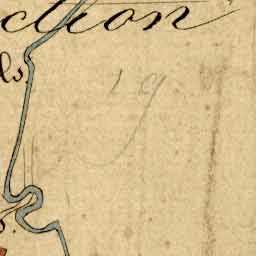 ction
ls.
19
s.